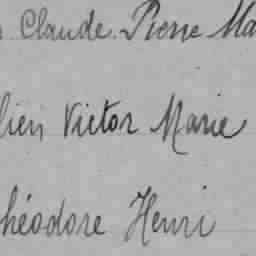 Claude Pierre Ma
lien Victor Marie
héodore Henri